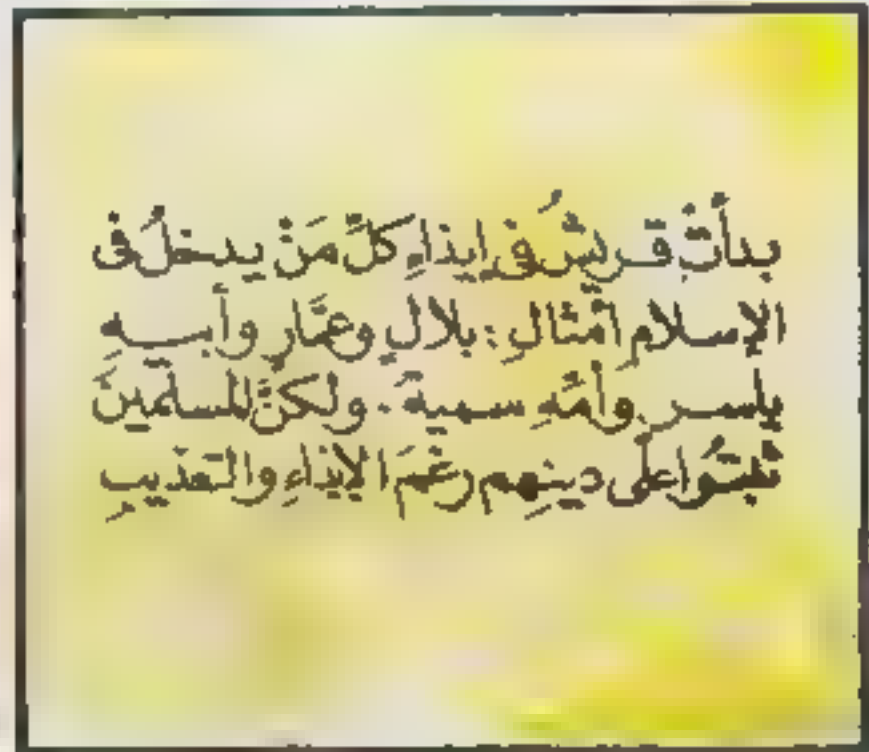 بدأتْ قريشُ فى إيذاءِ كلِّ مَنْ يدخلُ فى
الإسلامِ أمثالِ : بلالٍ وعمَّارٍ وأبيهِ
ياسر وأمِّهِ سميةَ . ولكنَّ المسلمينَ
ثبتُوا على دينِهم رغْمَ الإيذاءِ والتعذيبِ